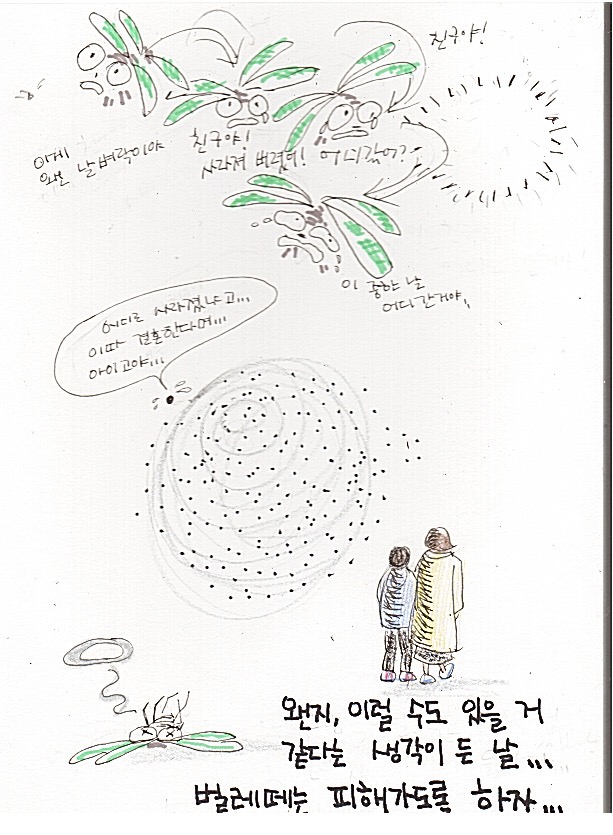 친구야!
이게
왠 날벼락이야
친구야!
사라져 버렸어! 어디갔어?
이 중한 날
어디간거야,
어디로 사라졌냐고...
이따 결혼한다며...
아이고야...
왠지, 이럴 수도 있을 거
같다는 생각이 든 날...
벌레떼는 피해가도록 하자...